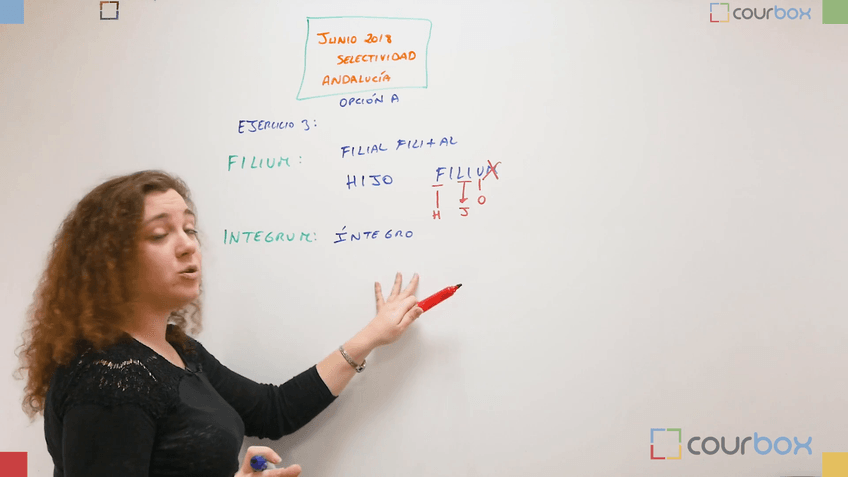 courbox
JUNIO 2018
SELECTIVIDAD
ANDALUCÍA
OPCIÓN A
EJERCICIO 3:
FILIUM: FILIAL FILI+AL
HIJO FILIUM
H J O
INTEGRUM: ÍNTEGRO
courbox